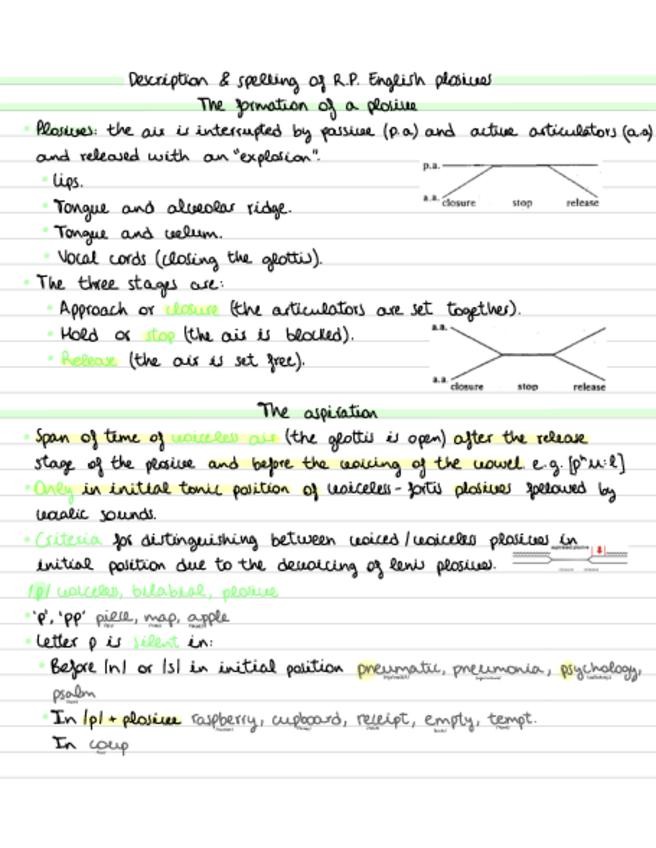 Description & spelling of R.P. English plosives
The formation of a plosive
Plosives: the air is interrupted by passive (p.a) and active articulators (a.a)
and released with an "explosion".
p.a.
a.a.
closure stop release
Lips.
Tongue and alveolar ridge.
Tongue and velum.
Vocal cords (closing the glottis).
The three stages are:
Approach or closure (the articulators are set together).
Hold or stop (the air is blocked).
Release (the air is set free).
a.a.
a.a.
closure stop release
The aspiration
Span of time of voiceless air (the glottis is open) after the release
stage of the plosive and before the voicing of the vowel e.g. [pʰu:l]
Only in initial tonic position of voiceless-fortis plosives followed by
vocalic sounds.
Criteria for distinguishing between voiced/voiceless plosives in
initial position due to the devoicing of lenis plosives.
/p/ voiceless, bilabial, plosive
'p', 'pp' piece, map, apple
Letter p is silent in:
Before /n/ or /s/ in initial position pneumatic, pneumonia, psychology,
psalm
In /p/ + plosive raspberry, cupboard, receipt, empty, tempt.
In coup